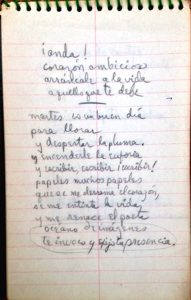 ¡anda!
corazón ambicios
arráncale a la vida
aquello que te debe
martes es un buen día
para llorar
y despertar la pluma.
y encenderle la euforia
y escribir, escribir ¡escribir!
papeles muchos papeles
que se me derrame el corazón,
se me entinte la vida,
y me renace el poeta
oceano de imágenes
te invoco y exijo tu presencia.